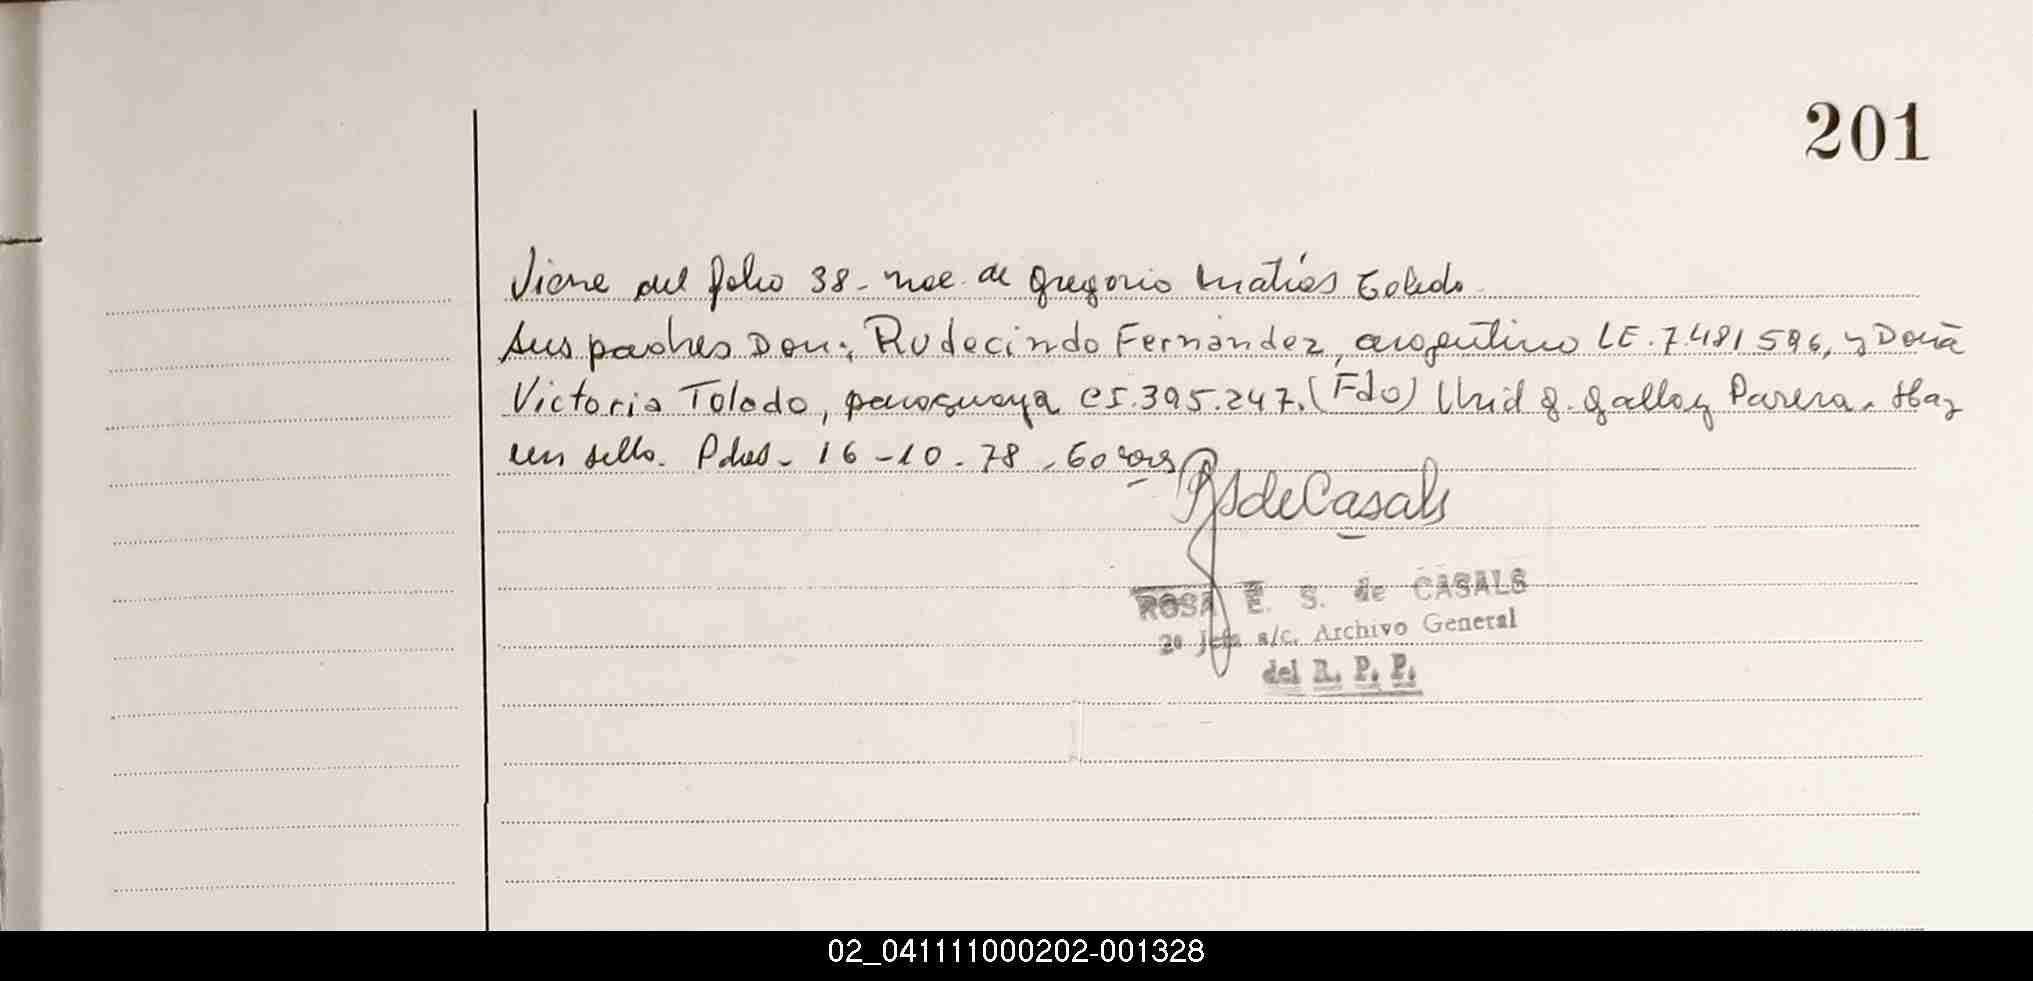 201
Viene del folio 38 - nac. de Gregorio Matías Toledo
Sus padres Don: Rudecindo Fernández, argentino LE. 7.481596, y Doña
Victoria Toledo, paraguaya CI. 395.247. (Fdo) G. Gallo y Parera. Hay
un sello. Pdas - 16-10-78.
RSdeCasals
ROSA E. S. de CASALS
2º Jefa a/c. Archivo General
del R. P. P.
02_041111000202-001328